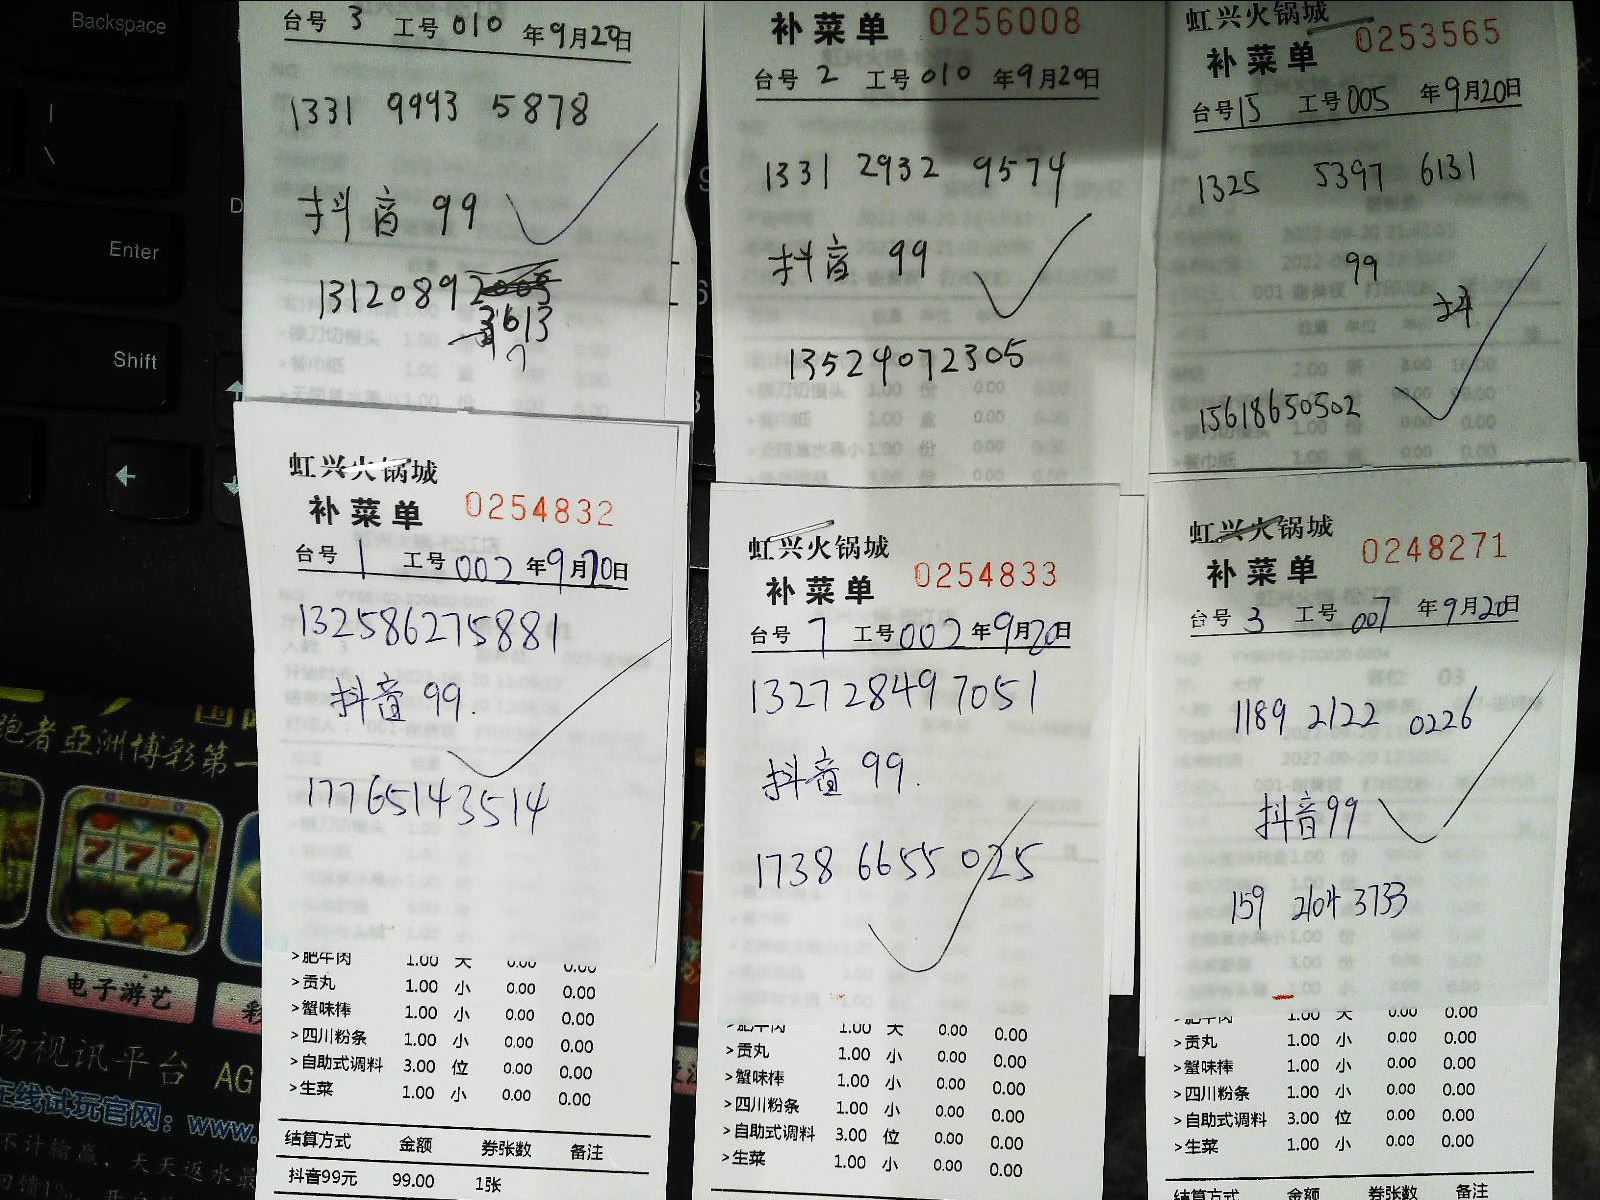 Backspace
Enter
Shift
台号 3 工号 010 年9月20日
1331 9993 5878
抖音 99
1312089
补菜单 0256008
台号 2 工号 010 年9月20日
1331 2932 9574
抖音 99
13524072305
虹兴火锅城
补菜单 0253565
台号 15 工号 005 年9月20日
1325 5397 6131
99
抖
15618650502
虹兴火锅城
补菜单 0254832
台号 1 工号 002 年9月20日
132586275881
抖音 99.
17765143514
>肥牛肉 1.00 大 0.00 0.00
>贡丸 1.00 小 0.00 0.00
>蟹味棒 1.00 小 0.00 0.00
>四川粉条 1.00 小 0.00 0.00
>自助式调料 3.00 位 0.00 0.00
>生菜 1.00 小 0.00 0.00
结算方式 金额 券张数 备注
抖音99元 99.00 1张
虹兴火锅城
补菜单 0254833
台号 7 工号 002 年9月20日
132728497051
抖音 99.
1738 6655 025
>肥牛肉 1.00 大 0.00 0.00
>贡丸 1.00 小 0.00 0.00
>蟹味棒 1.00 小 0.00 0.00
>四川粉条 1.00 小 0.00 0.00
>自助式调料 3.00 位 0.00 0.00
>生菜 1.00 小 0.00 0.00
虹兴火锅城
补菜单 0248271
台号 3 工号 007 年9月20日
1189 2122 0226
抖音99
159 2104 3733
>肥牛肉 1.00 大 0.00 0.00
>贡丸 1.00 小 0.00 0.00
>蟹味棒 1.00 小 0.00 0.00
>四川粉条 1.00 小 0.00 0.00
>自助式调料 3.00 位 0.00 0.00
>生菜 1.00 小 0.00 0.00
结算方式 金额 券张数 备注
跑者亞洲博彩第一
777
电子游艺
场视讯平台 AG
在线试玩官网：www.
不计输赢，天天返水最